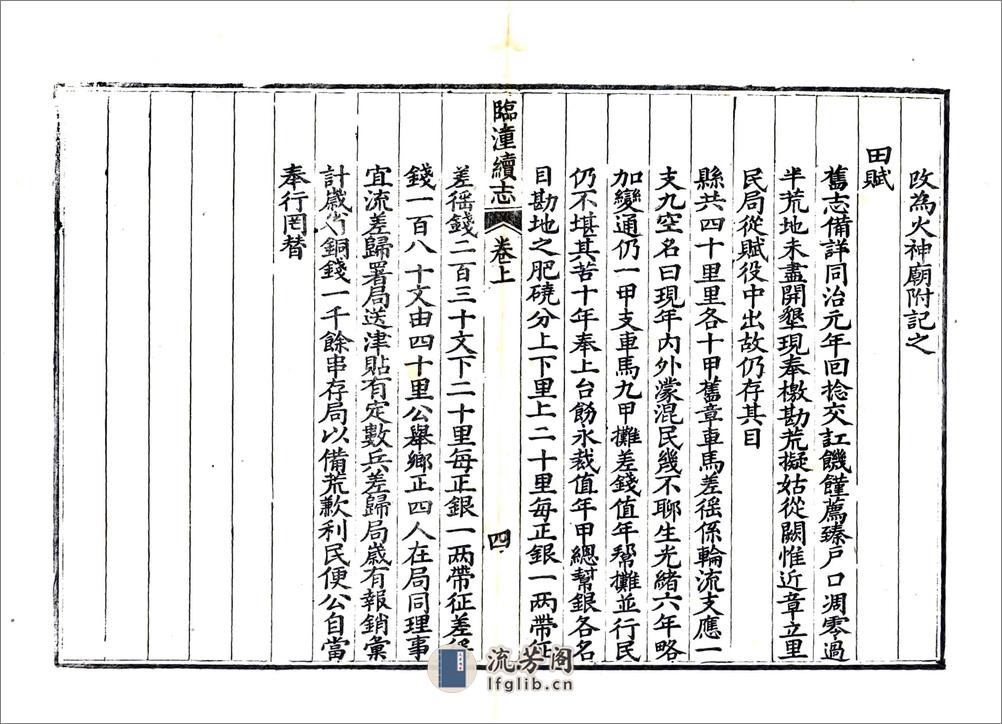 改為火神廟附記之
田賦
舊志備詳同治元年回捻交訌饑饉薦臻戶口凋零過
半荒地未盡開墾現奉檄勘荒擬姑從闕惟近章立里
民局從賦役中出故仍存其目
縣共四十里里各十甲舊章車馬差徭係輪流支應一
支九空名曰現年內外濛混民幾不聊生光緒六年略
加變通仍一甲支車馬九甲攤差錢值年幫攤並行民
仍不堪其苦十年奉上台飭永裁值年甲總幫銀各名
目勘地之肥磽分上下里上二十里每正銀一兩帶征
臨潼續志
卷上
四
差徭錢二百三十文下二十里每正銀一兩帶征差徭
錢一百八十文由四十里公舉鄉正四人在局同理事
宜流差歸署局送津貼有定數兵差歸局歲有報銷彙
計歲省銅錢一千餘串存局以備荒歉利民便公自當
奉行罔替
流芳阁
lfglib.cn